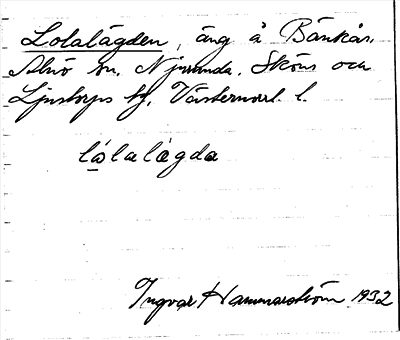 Lolalägden, äng å Bänkås,
Alnö sn, Njurunda, Sköns och
Ljustorps tg, Västernorrl. l.
lålalægda
Ingvar Hammarström 1932